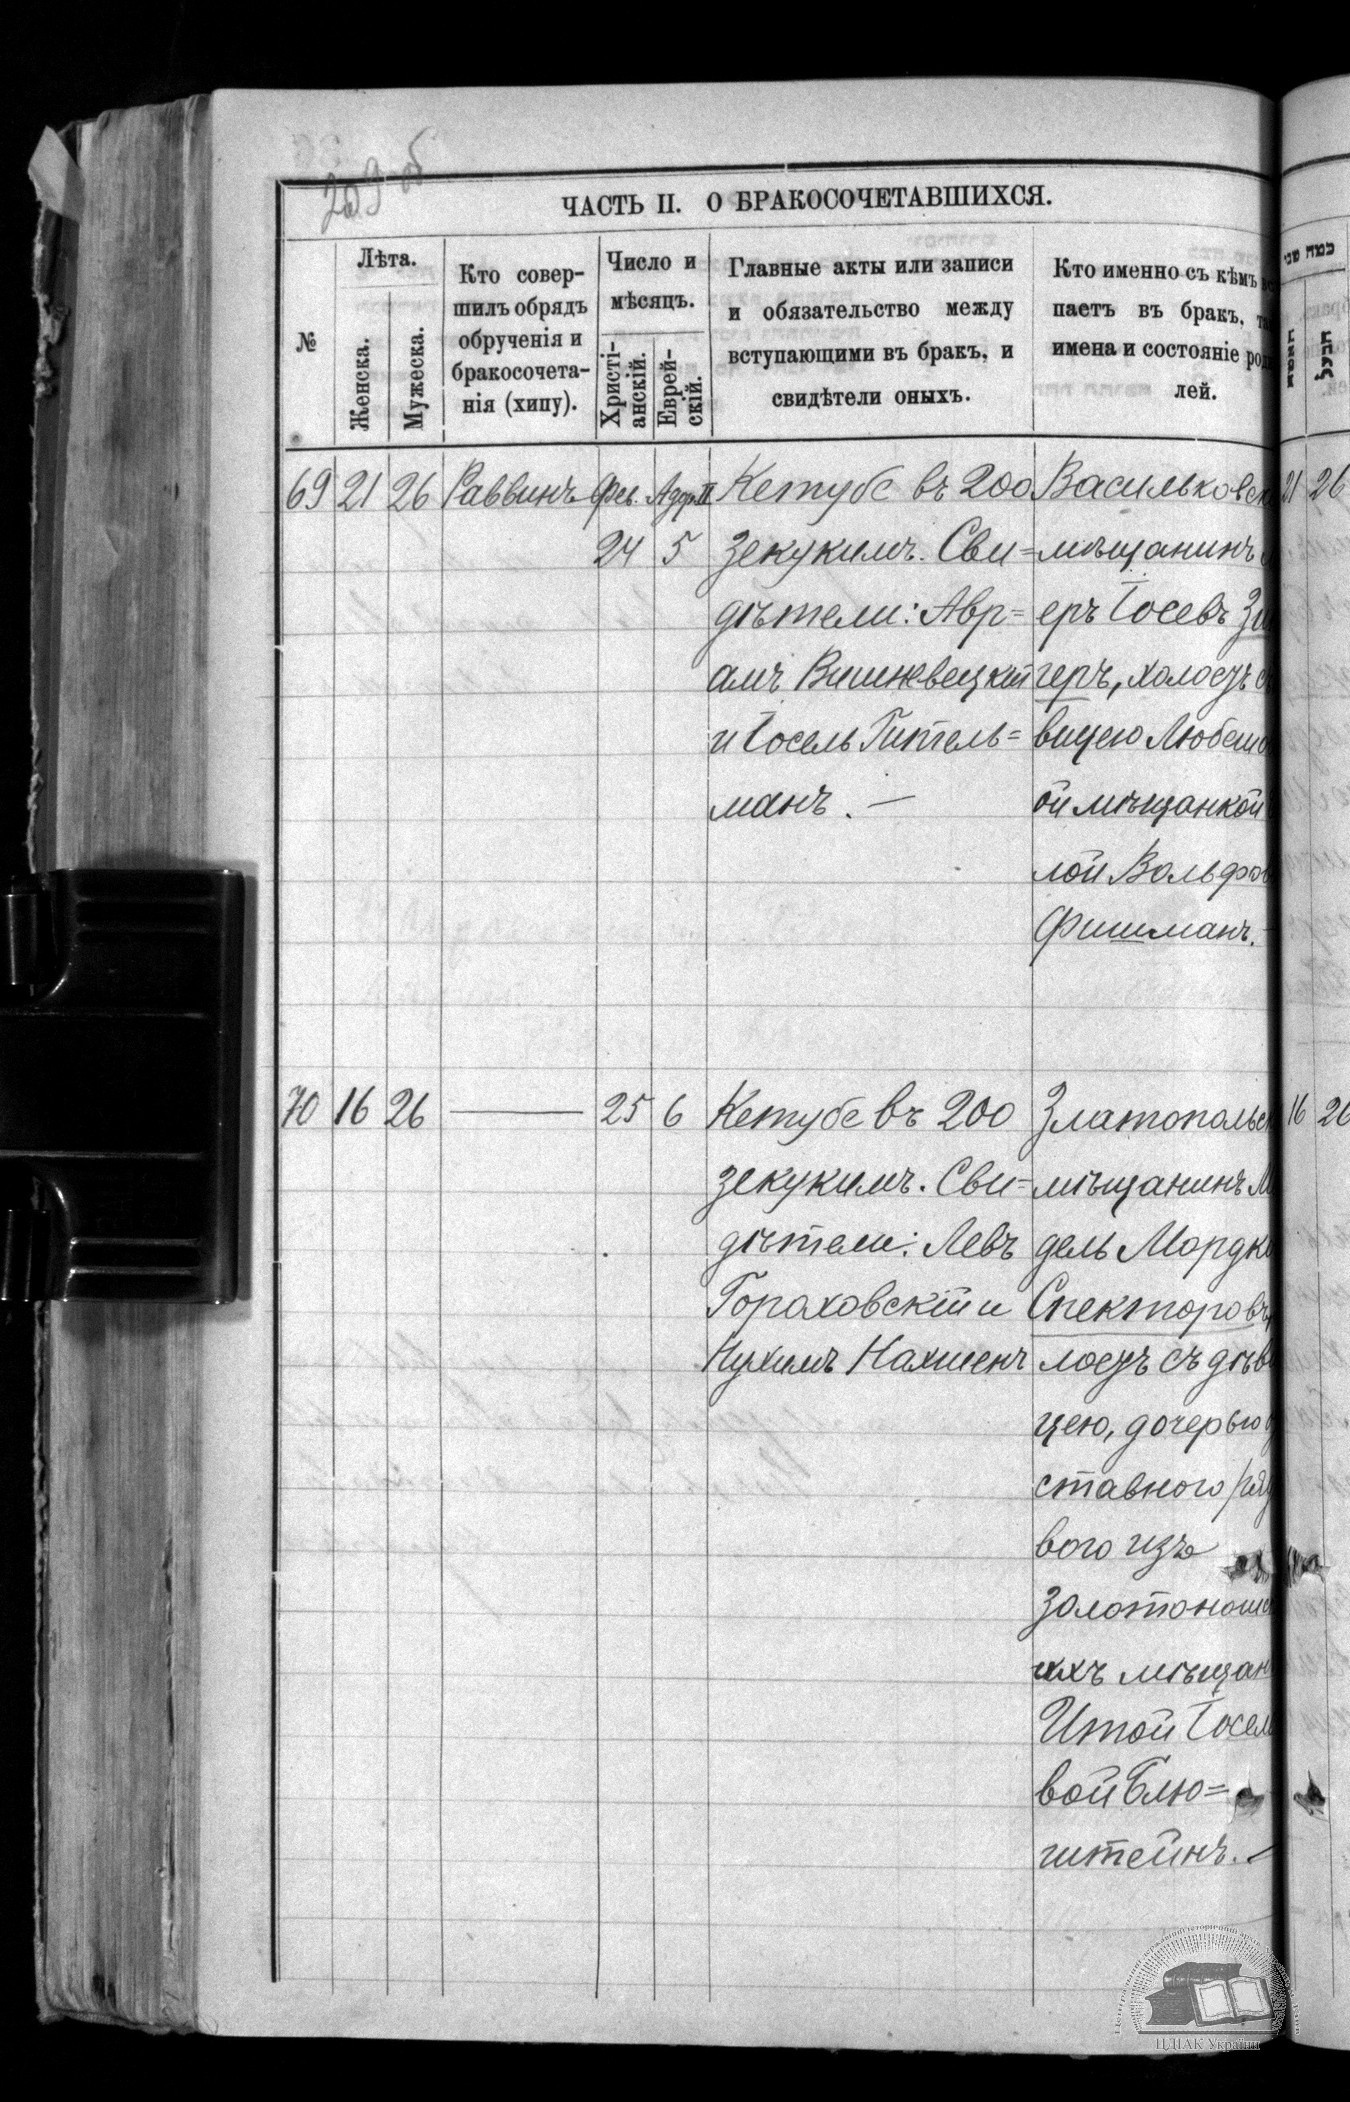 209 об
ЧАСТЬ II. О БРАКОСОЧЕТАВШИХСЯ.
№
Лѣта.
Женска.
Мужеска.
Кто совер-
шилъ обрядъ
обрученія и
бракосочета-
нія (хипу).
Число и
мѣсяцъ.
Христі-
анскій.
Еврей-
скій.
Главные акты или записи
и обязательство между
вступающими въ бракъ, и
свидѣтели оныхъ.
Кто именно съ кѣмъ
паетъ въ бракъ,
имена и состояніе
лей.
כמה שני
האשה
הבעל
69 21 26 Раввинъ Фев. Адр. II
24 5
Кетубе въ 200
зекукимъ. Сви=
дѣтели: Авр=
амъ Вишневецкій
и Іосель Гитель=
манъ. —
Васильковск
мѣщанинъ
еръ Іосевъ Зи
геръ, холосъ с
вицею Любешо
ой мѣщанкой
лой Вольфов
Фишманъ. —
21 26
70 16 26 — 25 6
Кетубе въ 200
зекукимъ. Сви=
дѣтели: Левъ
Гороховскій и
Нухимъ Нахшенъ
Златопольск
мѣщанинъ М
дель Мордко
Спекторовъ,
лосъ съ дѣви
цею, дочерью
ставного ряд
вого изъ
Золотоношс
ихъ мѣщан
Итой Іосел
вой Блю=
штейнъ. —
16 26
ЦДІАК України